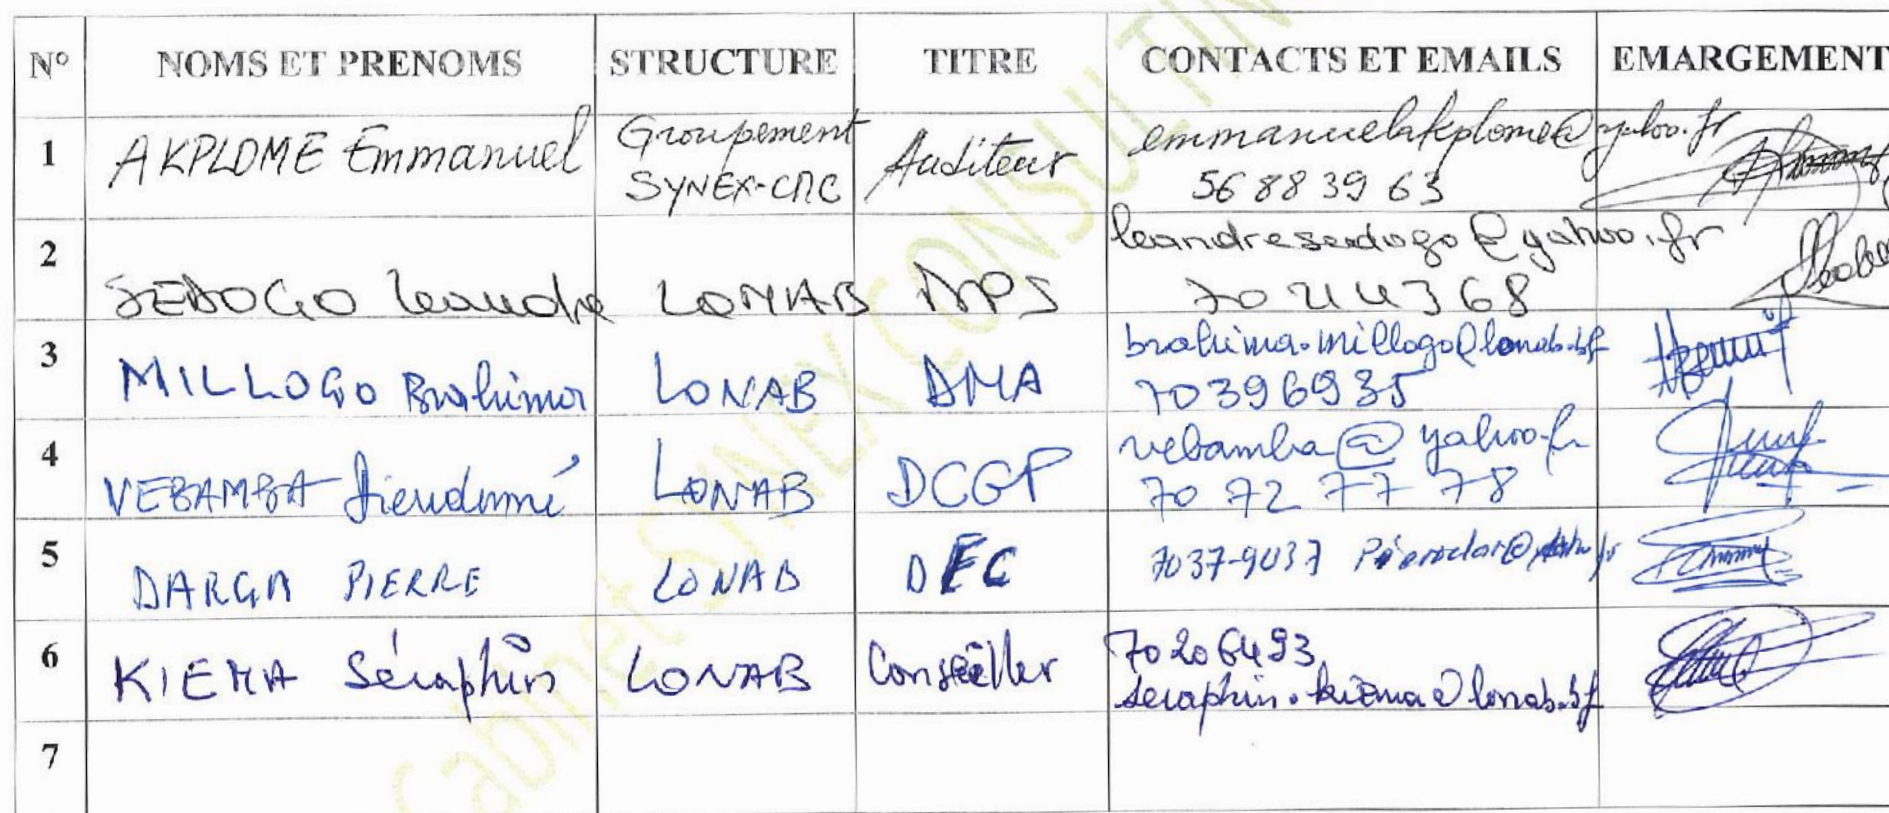 N° NOMS ET PRENOMS STRUCTURE TITRE CONTACTS ET EMAILS EMARGEMENT
1 AKPLOME Emmanuel Groupement SYNEX-CRC Auditeur emmanuelakplome@yahoo.fr
56 88 39 63
2 SEDOGO Leandre LONAB DPS leandresedogo@yahoo.fr
3 MILLOGO Brahima LONAB DMA brahima.millogo@lonab.bf
70396935
4 VEBAMBA Dieudonné LONAB DCGP vebamba@yahoo.fr
70 72 77 78
5 DARGA PIERRE LONAB DEC
6 KIEMA Séraphin LONAB Conseiller 70206493
seraphin.kiema@lonab.bf
7
Cabinet SYNEX CONSULTIN